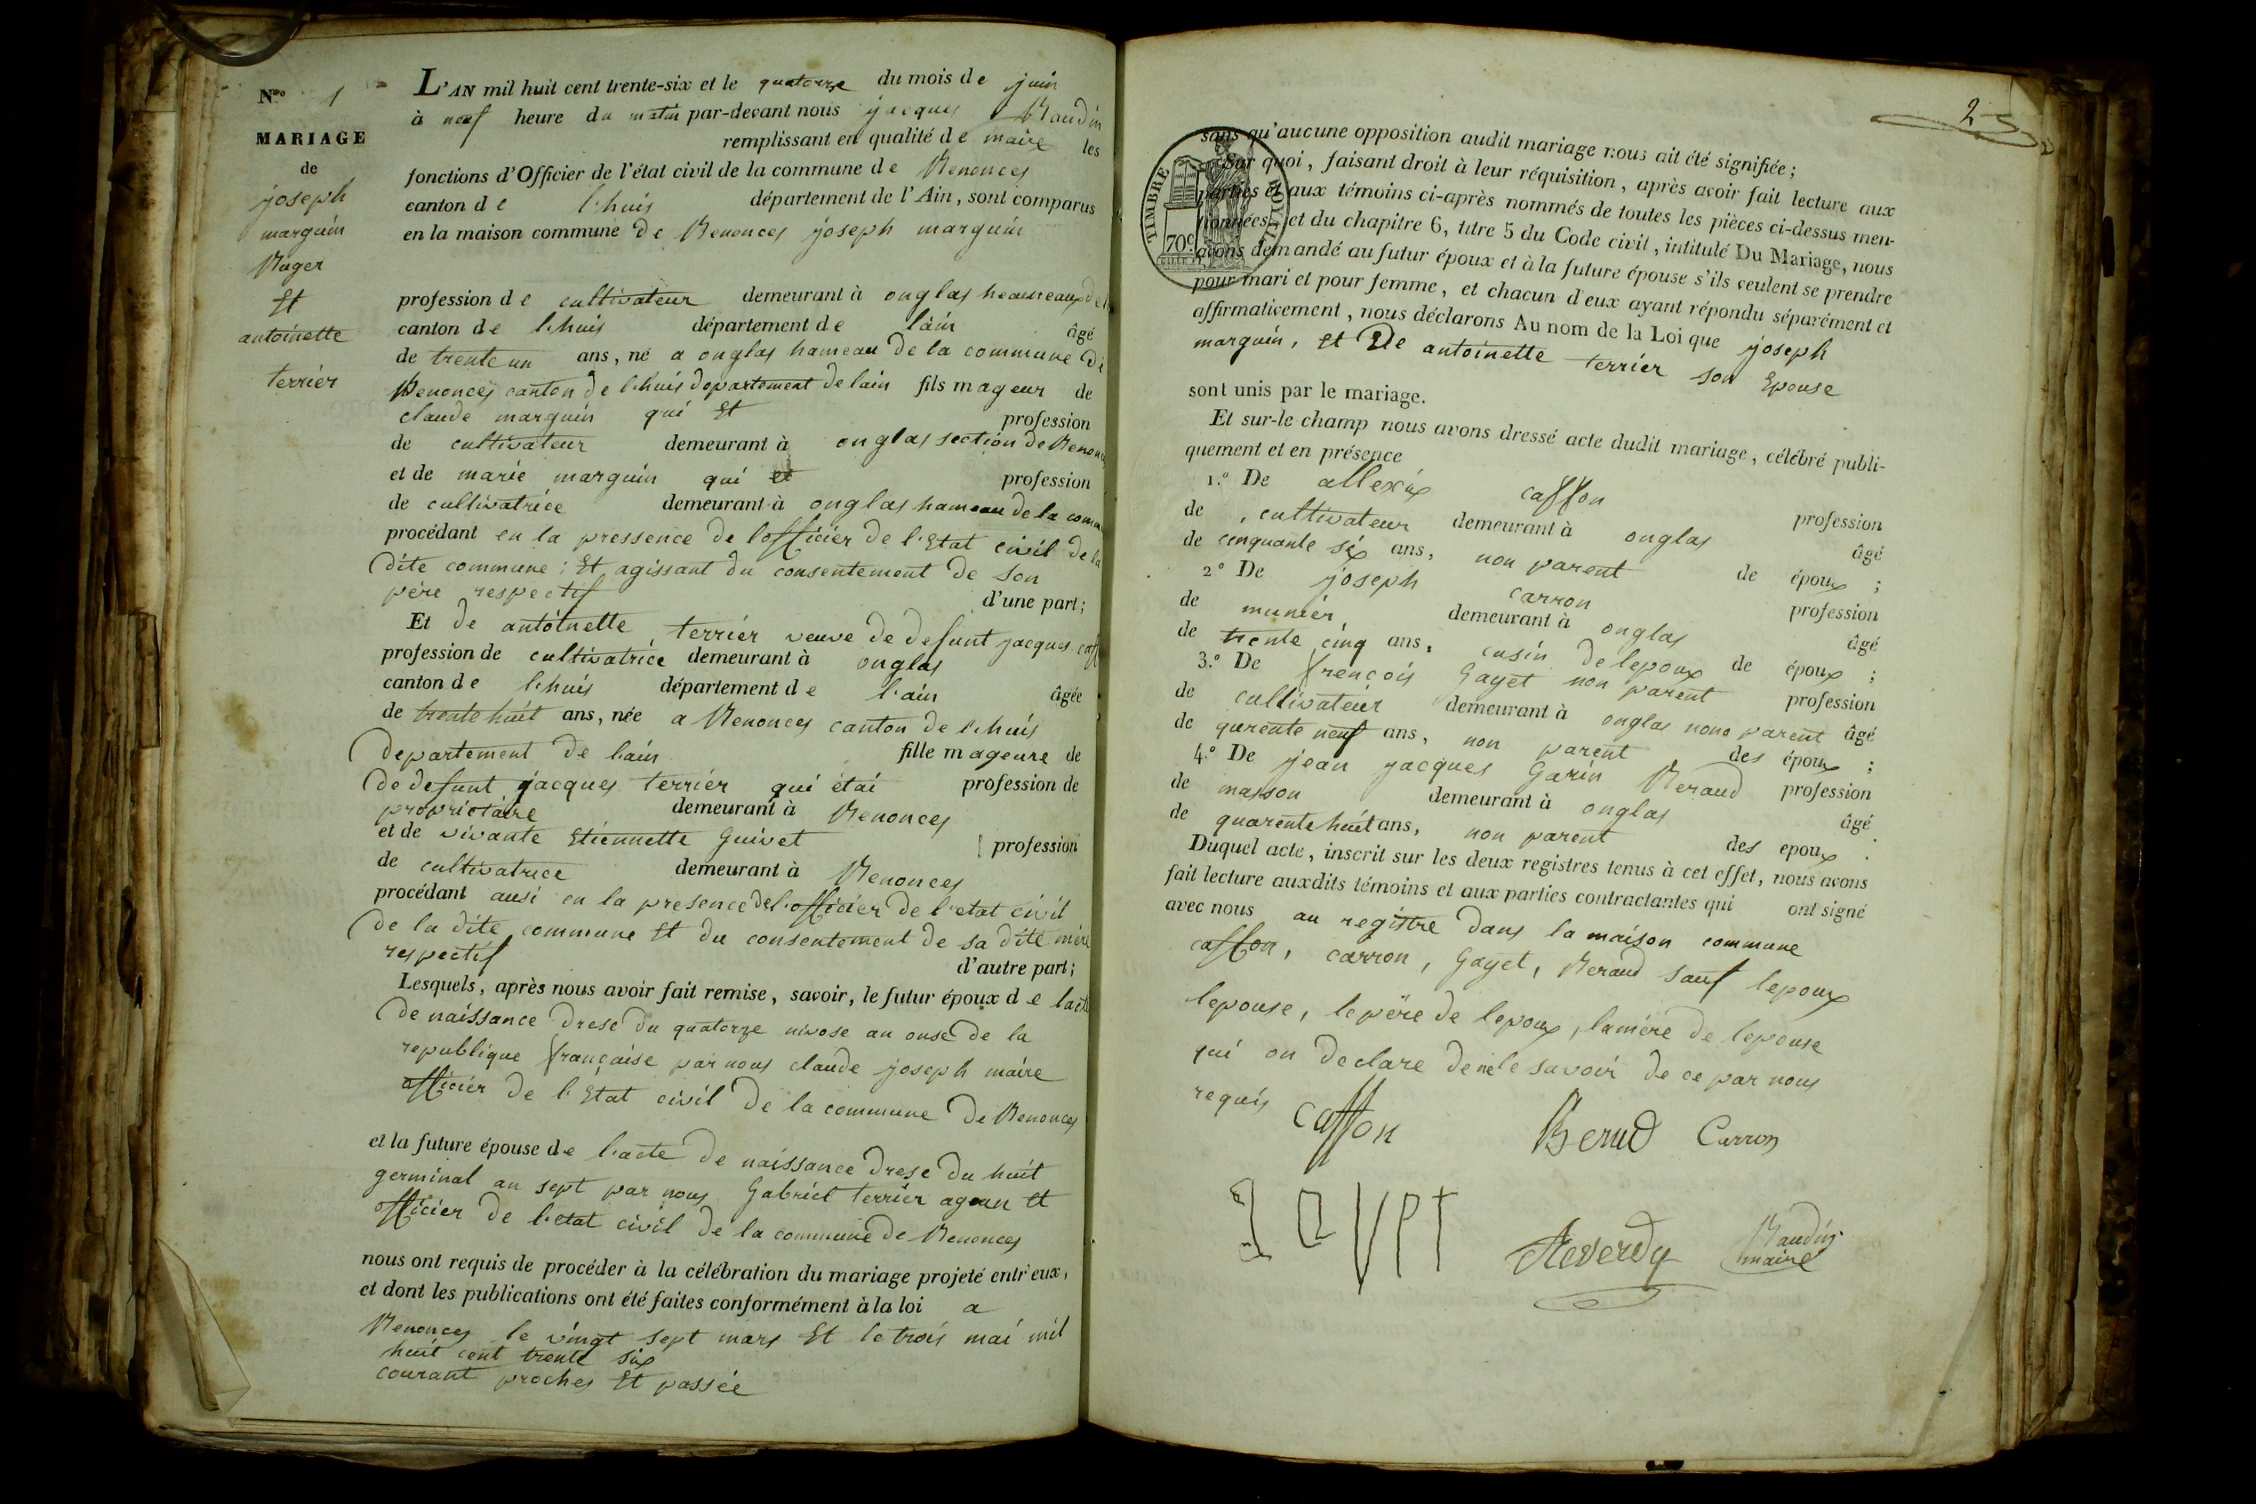 N.ro 1
MARIAGE
de
joseph
marguin
Nager
Et
antoinette
terrier
L'AN mil huit cent trente-six et le quatorze du mois de juin
à neuf heure du matin par-devant nous jacques Baudin
remplissant en qualité de maire les
fonctions d'Officier de l'état civil de la commune de Benonces
canton de l'huis département de l'Ain, sont comparus
en la maison commune de Benonces joseph marguin
profession de cultivateur demeurant à onglas
canton de l'huis département de l'ain âgé
de trente un ans, né a onglas hameau de la commune de
Benonces canton de l'huis departement de lain fils mageur de
claude marguin qui Et profession
de cultivateur demeurant à onglas section de Benonces
et de marie marguin qui et profession
de cultivatrice demeurant à onglas hameau de la comm
procédant en la pressence de l'officier de l'Etat civil de la
dite commune; Et agissant du consentement de son
père respectif d'une part;
Et de antoinette terrier veuve de defunt jacques caff
profession de cultivatrice demeurant à onglas
canton de l'huis département de l'ain âgée
de trente huit ans, née a Benonces canton de l'huis
departement de l'ain fille mageure de
de defunt jacques terrier qui étai profession de
propriétaire demeurant à Benonces
et de vivante Etiennette Guivet profession
de cultivatrice demeurant à Benonces
procédant ausi en la presence de l'officier de l'etat civil
de la dite commune Et du consentement de sa dite mère
respectif d'autre part;
Lesquels, après nous avoir fait remise, savoir, le futur époux de lacte
de naissance drese du quatorze nivose an onse de la
republique française par nous claude joseph maire
officier de l'Etat civil de la commune de Benonces
et la future épouse de l'acte de naissance drese du huit
germinal an sept par nous Gabriel terrier agean Et
officier de l'etat civil de la commune de Benonces
nous ont requis de procéder à la célébration du mariage projeté entr'eux,
et dont les publications ont été faites conformément à la loi a
Benonces le vingt sept mars Et le trois mai mil
huit cent trente six
courant proches Et passée
2
sans qu'aucune opposition audit mariage nous ait été signifiée;
Sur quoi, faisant droit à leur réquisition, après avoir fait lecture aux
parties et aux témoins ci-après nommés de toutes les pièces ci-dessus men-
tionnées, et du chapitre 6, titre 5 du Code civil, intitulé Du Mariage, nous
avons demandé au futur époux et à la future épouse s'ils veulent se prendre
pour mari et pour femme, et chacun d'eux ayant répondu séparément et
affirmativement, nous déclarons Au nom de la Loi que joseph
marguin, Et De antoinette terrier son Epouse
sont unis par le mariage.
Et sur-le champ nous avons dressé acte dudit mariage, célébré publi-
quement et en présence
1.º De allexix caffon profession
de cultivateur demeurant à onglas âgé
de cinquante six ans, non parent de époux ;
2º De joseph carron profession
de munier demeurant à onglas âgé
de trente cinq ans, cusin de lepoux de époux ;
3.º De françois Gayet non parent profession
de cultivateur demeurant à onglas nono parent âgé
de qurente neuf ans, non parent des époux ;
4.º De jean jacques Garin Beraud profession
de masson demeurant à onglas âgé
de quarente huit ans, non parent des epoux .
Duquel acte, inscrit sur les deux registres tenus à cet effet, nous avons
fait lecture auxdits témoins et aux parties contractantes qui ont signé
avec nous au registre dans la maison commune
caffon, carron, Gayet, Beraud sauf lepoux
lepouse, le père de lepoux, la mère de lepouse
qui on declare de ne le savoir de ce par nous
requis
TIMBRE ROYAL
70c
caffon Berud Carron
Reverdy Baudin
maire